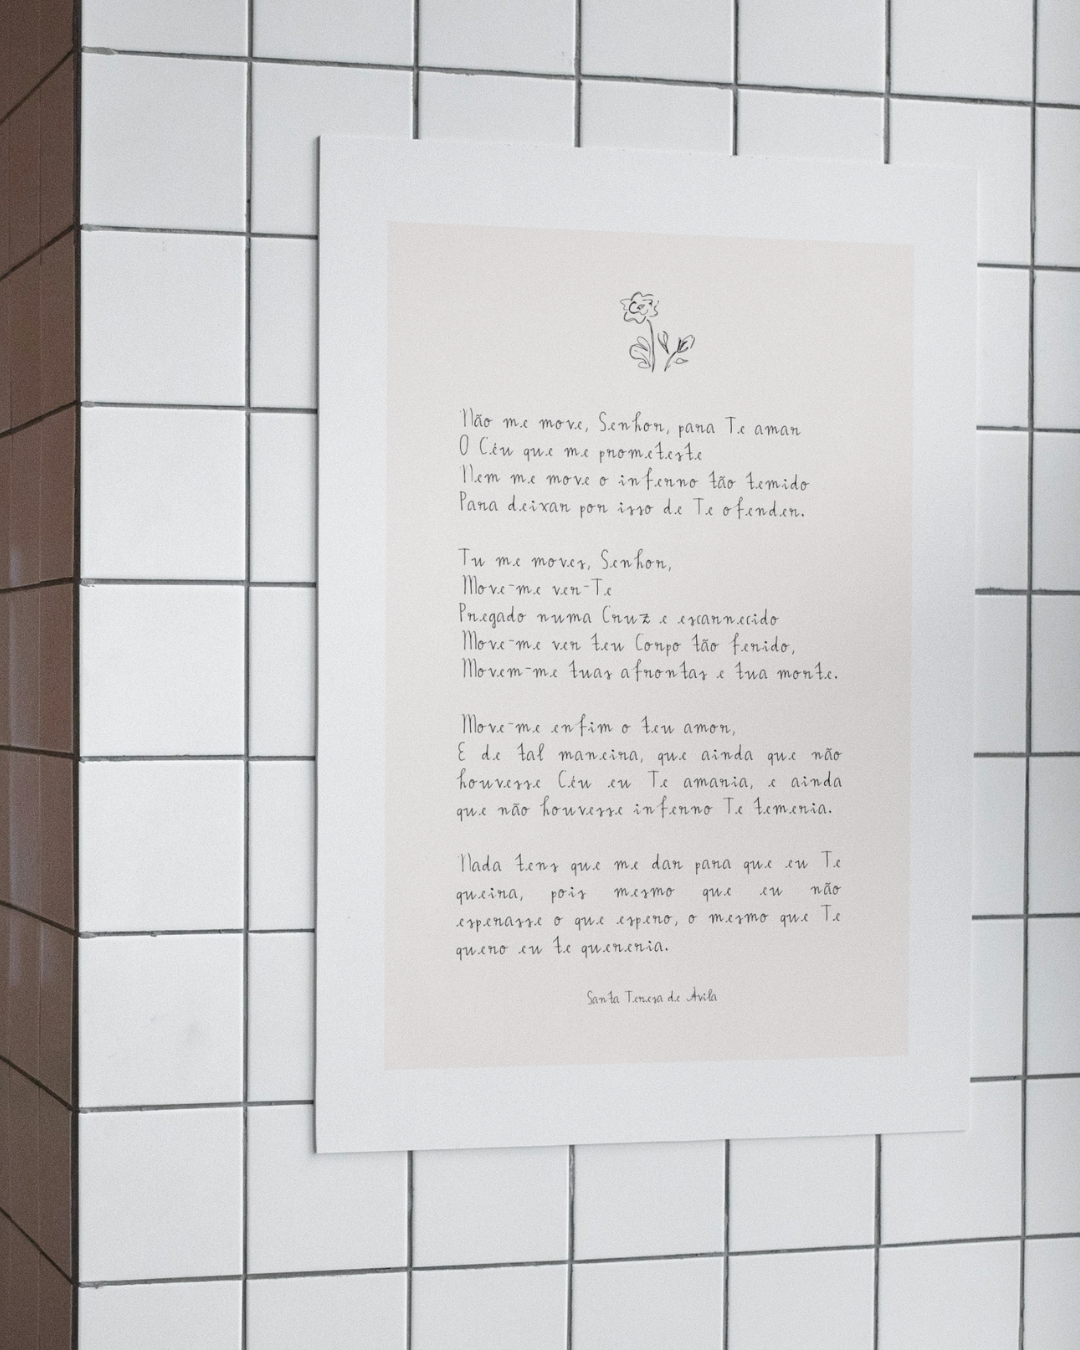 Não me move, Senhor, para Te amar
O Céu que me prometeste
Nem me move o inferno tão temido
Para deixar por isso de Te ofender.
Tu me moves, Senhor,
Move-me ver-Te
Pregado numa Cruz e escarnecido
Move-me ver teu Corpo tão ferido,
Movem-me tuas afrontas e tua morte.
Move-me enfim o teu amor,
E de tal maneira, que ainda que não
houvesse Céu eu Te amaria, e ainda
que não houvesse inferno Te temeria.
Nada tens que me dar para que eu Te
queira, pois mesmo que eu não
esperasse o que espero, o mesmo que Te
quero eu te quereria.
Santa Teresa de Ávila